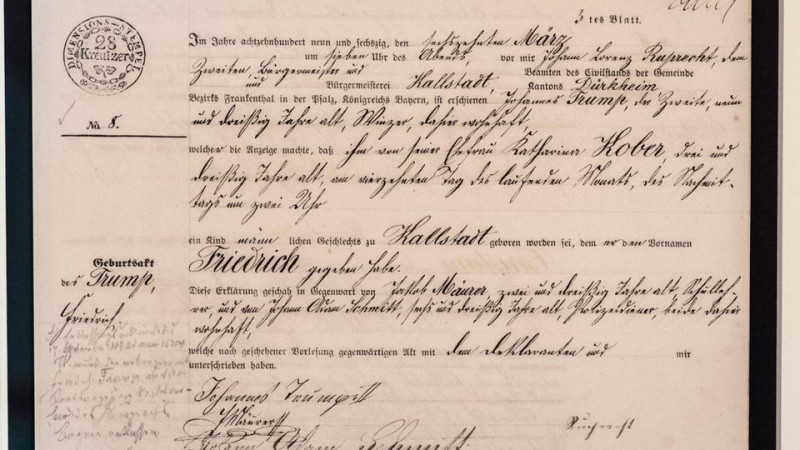 3 tes Blatt.
DIMENSIONS-STEMPEL
28
Kreutzer
Im Jahre achtzehnhundert neun und sechszig, den sechszehnten März
um sieben Uhr des Abends, vor mir Johann Lorenz Ruprecht, dem
Zweiten, Bürgermeister und Beamten des Civilstands der Gemeinde
und Bürgermeisterei Kallstadt, Kantons Dürkheim
Bezirks Frankenthal in der Pfalz, Königreichs Bayern, ist erschienen Johannes Trump, der Zweite, neun
No. 8.
und dreißig Jahre alt, Winzer, dahier wohnhaft,
welcher die Anzeige machte, daß ihm von seiner Ehefrau Katharina Kober, drei und
dreißig Jahre alt, am vierzehnten Tag des laufenden Monats, des Nachmit-
tags um zwei Uhr
ein Kind männ lichen Geschlechts zu Kallstadt geboren worden sei, dem er den Vornamen
Friedrich gegeben habe.
Geburtsakt
des Trump,
Friedrich.
Diese Erklärung geschah in Gegenwart von Jakob Maurer, zwei und dreißig Jahre alt, Schulleh-
rer und von Johann Adam Schmitt, sechs und dreißig Jahre alt, Polizeidiener, beide dahier
wohnhaft,
welche nach geschehener Vorlesung gegenwärtigen Akt mit dem Deklaranten und mir
unterschrieben haben.
Johannes Trump
Maurer
Ruprecht
Johann Adam Schmitt.